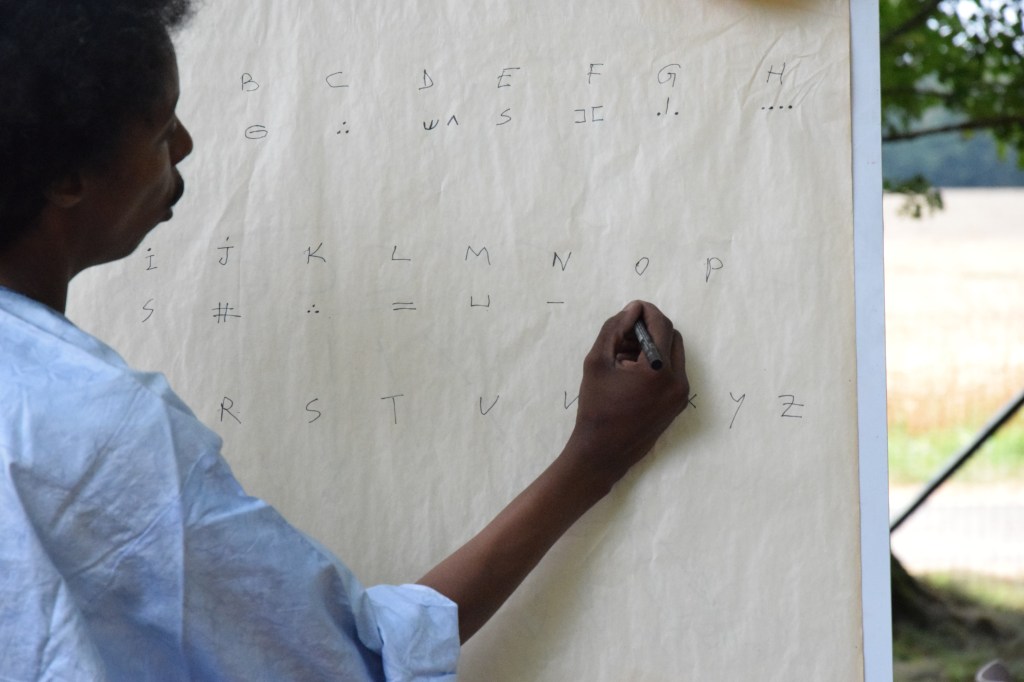 B C D E F G H
⊖ ∴ ψ ʌ S ⊐⊏ ·|· ····
i J K L M N O P
S # ∴ = ⊔ —
R S T U V X Y Z